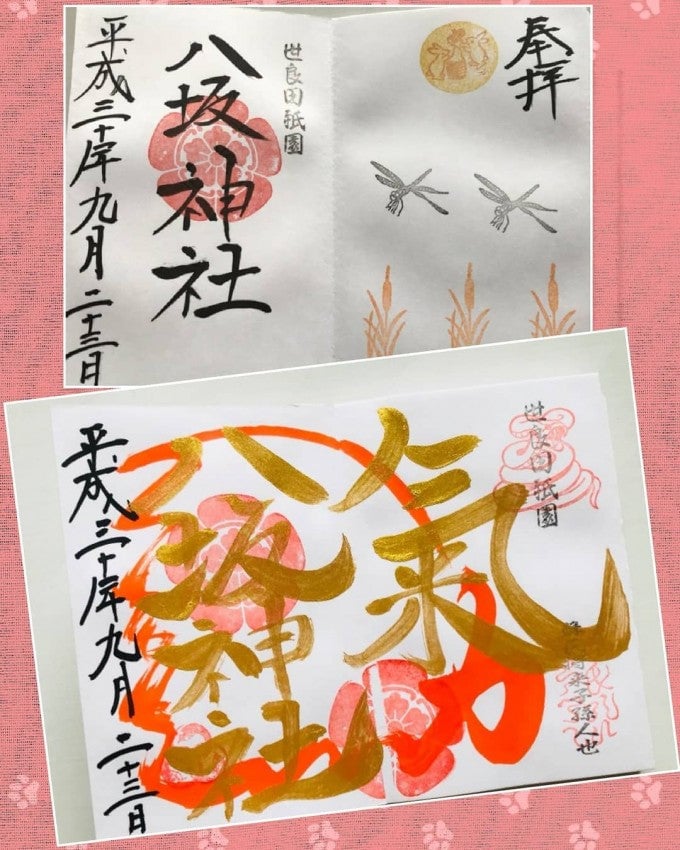 奉拝
世良田祇園
八坂神社
平成三十年九月二十三日
世良田祇園
来子孫人也
氣
八坂神社
平成三十年九月二十三日